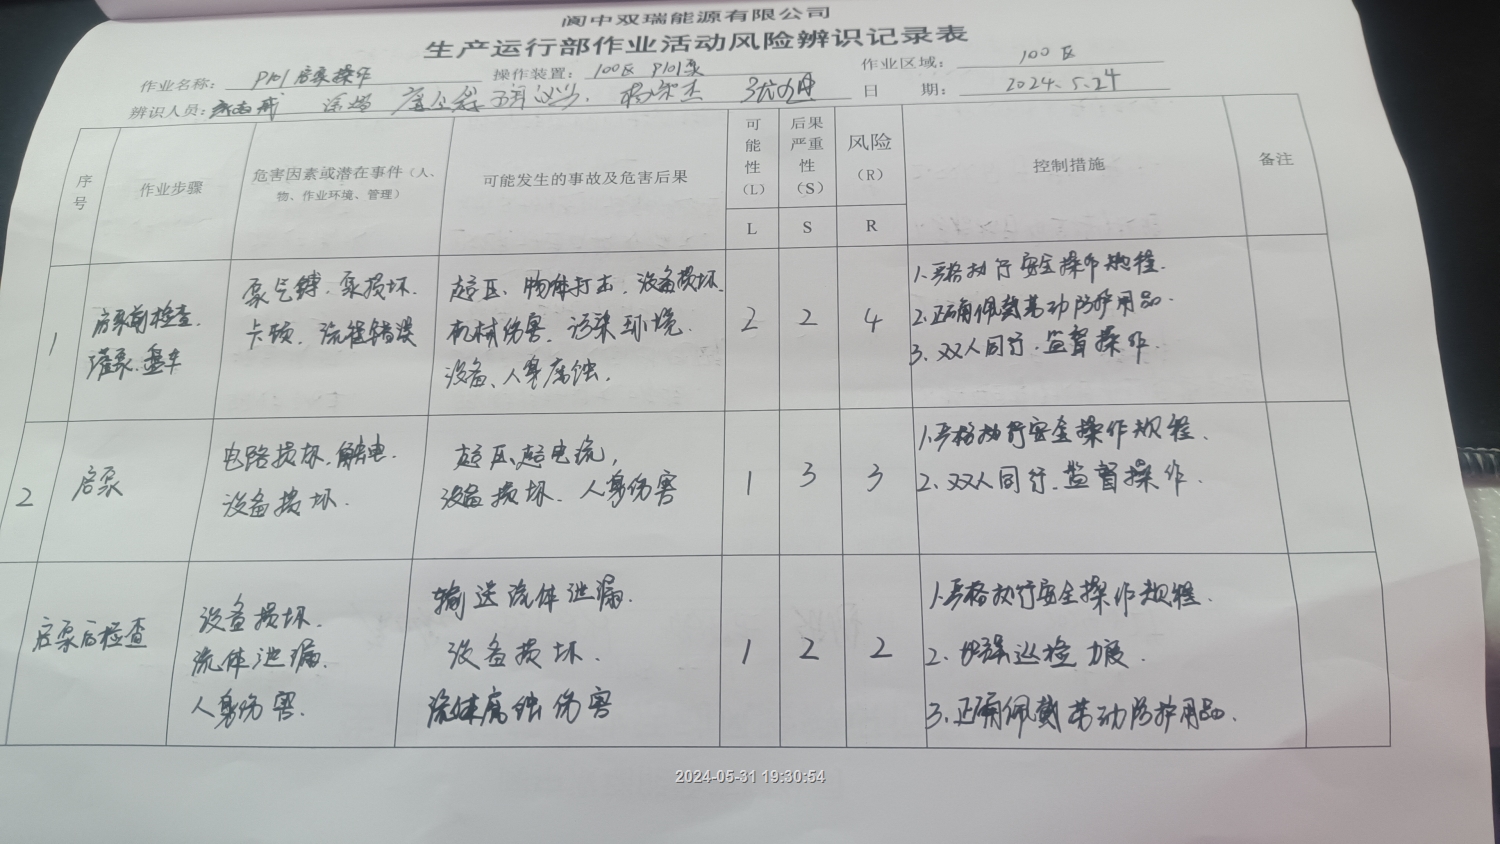 阆中双瑞能源有限公司
生产运行部作业活动风险辨识记录表
作业名称： P101启泵操作 操作装置： 100区 P101泵 作业区域： 100区
辨识人员： 日 期： 2024.5.24
序号 作业步骤 危害因素或潜在事件（人、物、作业环境、管理） 可能发生的事故及危害后果 可能性（L） 后果严重性（S） 风险（R） 控制措施 备注
L S R
1 启泵前检查. 灌泵.盘车
泵气缚.泵损坏.
卡顿.流程错误
超压、物体打击.设备损坏.
机械伤害.污染环境.
设备、人身腐蚀.
2 2 4
1.严格执行安全操作规程.
2.正确佩戴劳动防护用品.
3.双人同行.监督操作.
2 启泵
电路损坏.触电.
设备损坏.
超压、超电流,
设备损坏.人身伤害
1 3 3
1.严格执行安全操作规程.
2.双人同行.监督操作.
启泵后检查
设备损坏.
流体泄漏.
人身伤害.
输送流体泄漏.
设备损坏.
流体腐蚀伤害
1 2 2
1.严格执行安全操作规程.
2.加强巡检力度.
3.正确佩戴劳动防护用品.
2024-05-31 19:30:54